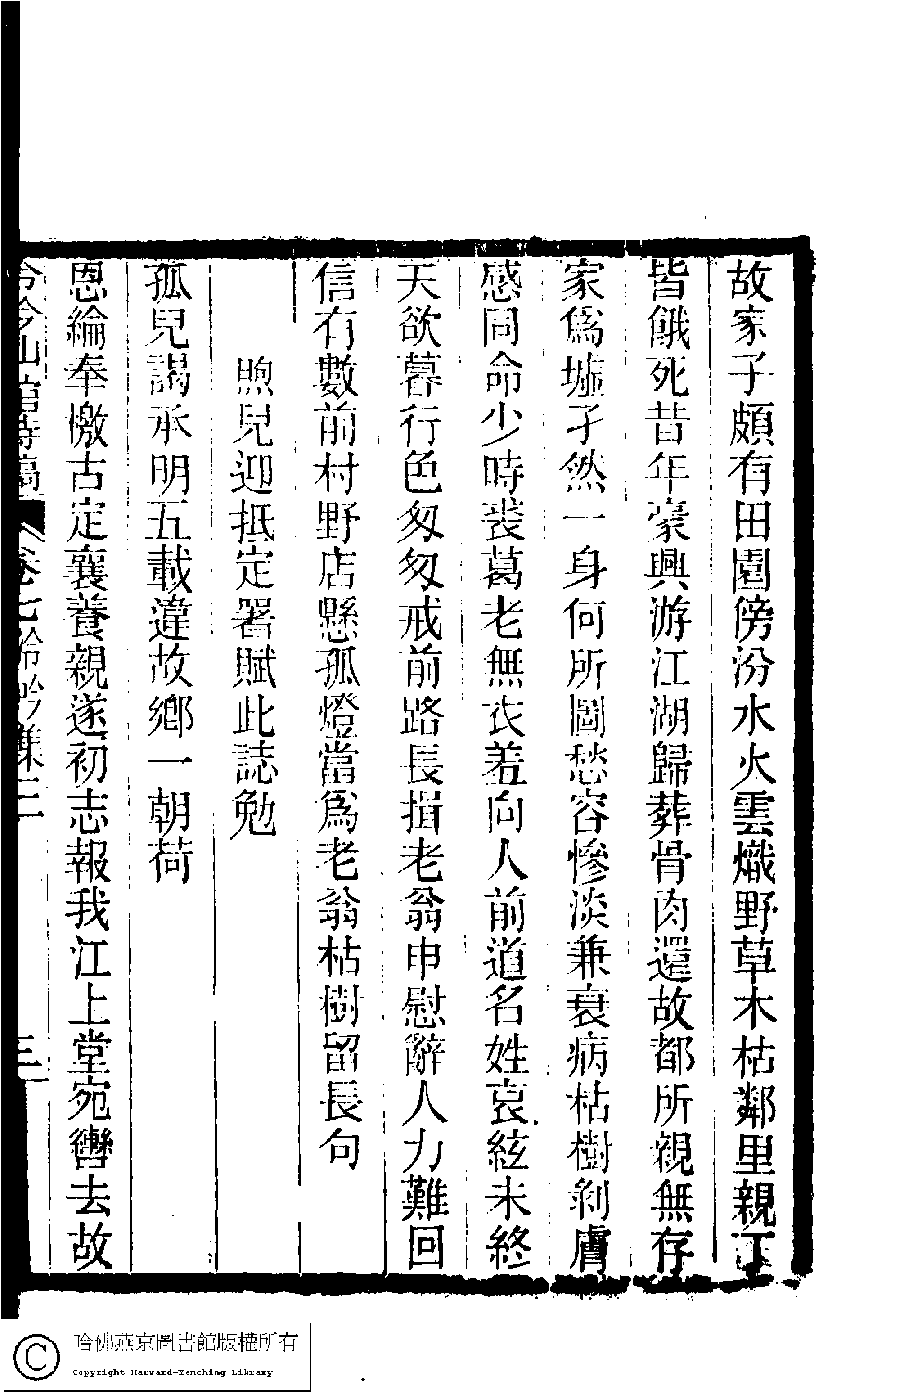 故家子頗有田園傍汾水火雲熾野草木枯鄰里親丁
皆餓死昔年豪興游江湖歸葬骨肉還故都所親無存
家爲墟孑然一身何所圖愁容慘淡兼衰病枯樹剝膚
感同命少時裘葛老無衣羞向人前道名姓哀絃未終
天欲暮行色匆匆戒前路長揖老翁申慰辭人力難回
信有數前村野店懸孤燈當爲老翁枯樹留長句
煦兒迎抵定署賦此誌勉
孤兒謁承明五載違故鄉一朝荷
恩綸奉檄古定襄養親遂初志報我江上堂宛轡去故
山館詩稿 卷七 集二 三
哈佛燕京圖書館版權所有
Copyright Harvard-Yenching Library